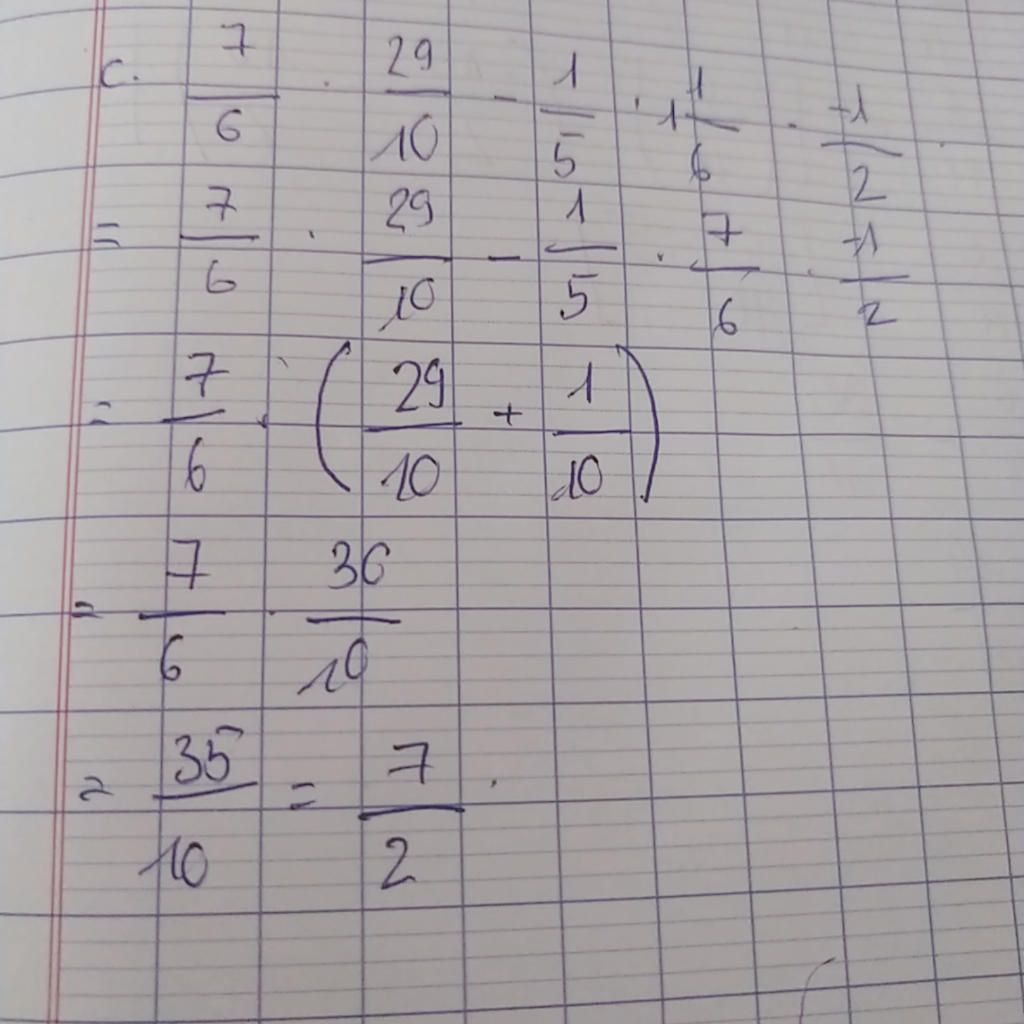 c. 7/6 . 29/10 - 1/5 . 1 1/6 . -1/2
= 7/6 . 29/10 - 1/5 . 7/6 . -1/2
= 7/6 . (29/10 + 1/10)
= 7/6 . 30/10
= 35/10 = 7/2 .